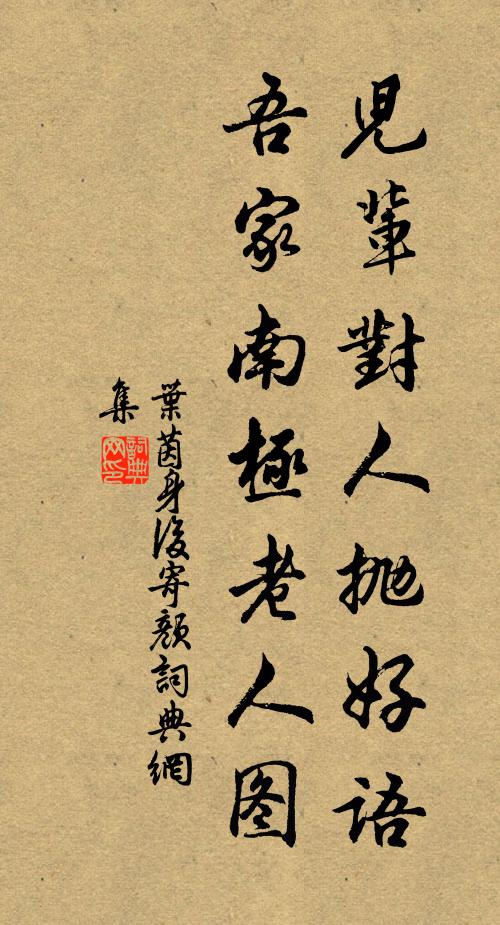 兒輩對人拋好語
吾家南極老人图
葉茵身後寄顏詞典網
集
詞典网印